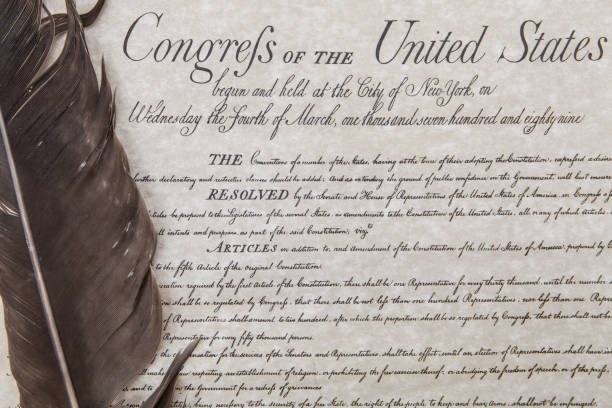 Congreſs OF THE United States
begun and held at the City of New-York, on
Wednesday the Fourth of March, one thousand seven hundred and eighty nine
THE Conventions of a number of the States, having at the time of their adopting the Constitution, expreſsed a desire
further declaratory and restrictive clauses should be added: And as extending the ground of public confidence in the Government, will best ensure
RESOLVED by the Senate and House of Representatives of the United States of America, in Congreſs
be proposed to the Legislatures of the several States, as amendments to the Constitution of the United States, all or any of which articles
all intents and purposes, as part of the said Constitution; vizt
ARTICLES in addition to, and Amendment of the Constitution of the United States of America, proposed by C
to the fifth Article of the original Constitution.
required by the first article of the Constitution, there shall be one Representative for every thirty thousand, until the number
shall be so regulated by Congreſs, that there shall be not leſs than one hundred Representatives, nor leſs than one Repres
of Representatives shall amount to two hundred, after which the proportion shall be so regulated by Congreſs, that there shall not be
Representative for every fifty thousand persons.
for the services of the Senators and Representatives, shall take effect, until an election of Representatives shall have in
make law respecting an establishment of religion, or prohibiting the free exercise thereof; or abridging the freedom of speech, or of the preſs,
and to the Government for a redreſs of grievances
being neceſsary to the security of a free State, the right of the people to keep and bear Arms, shall not be infringed.